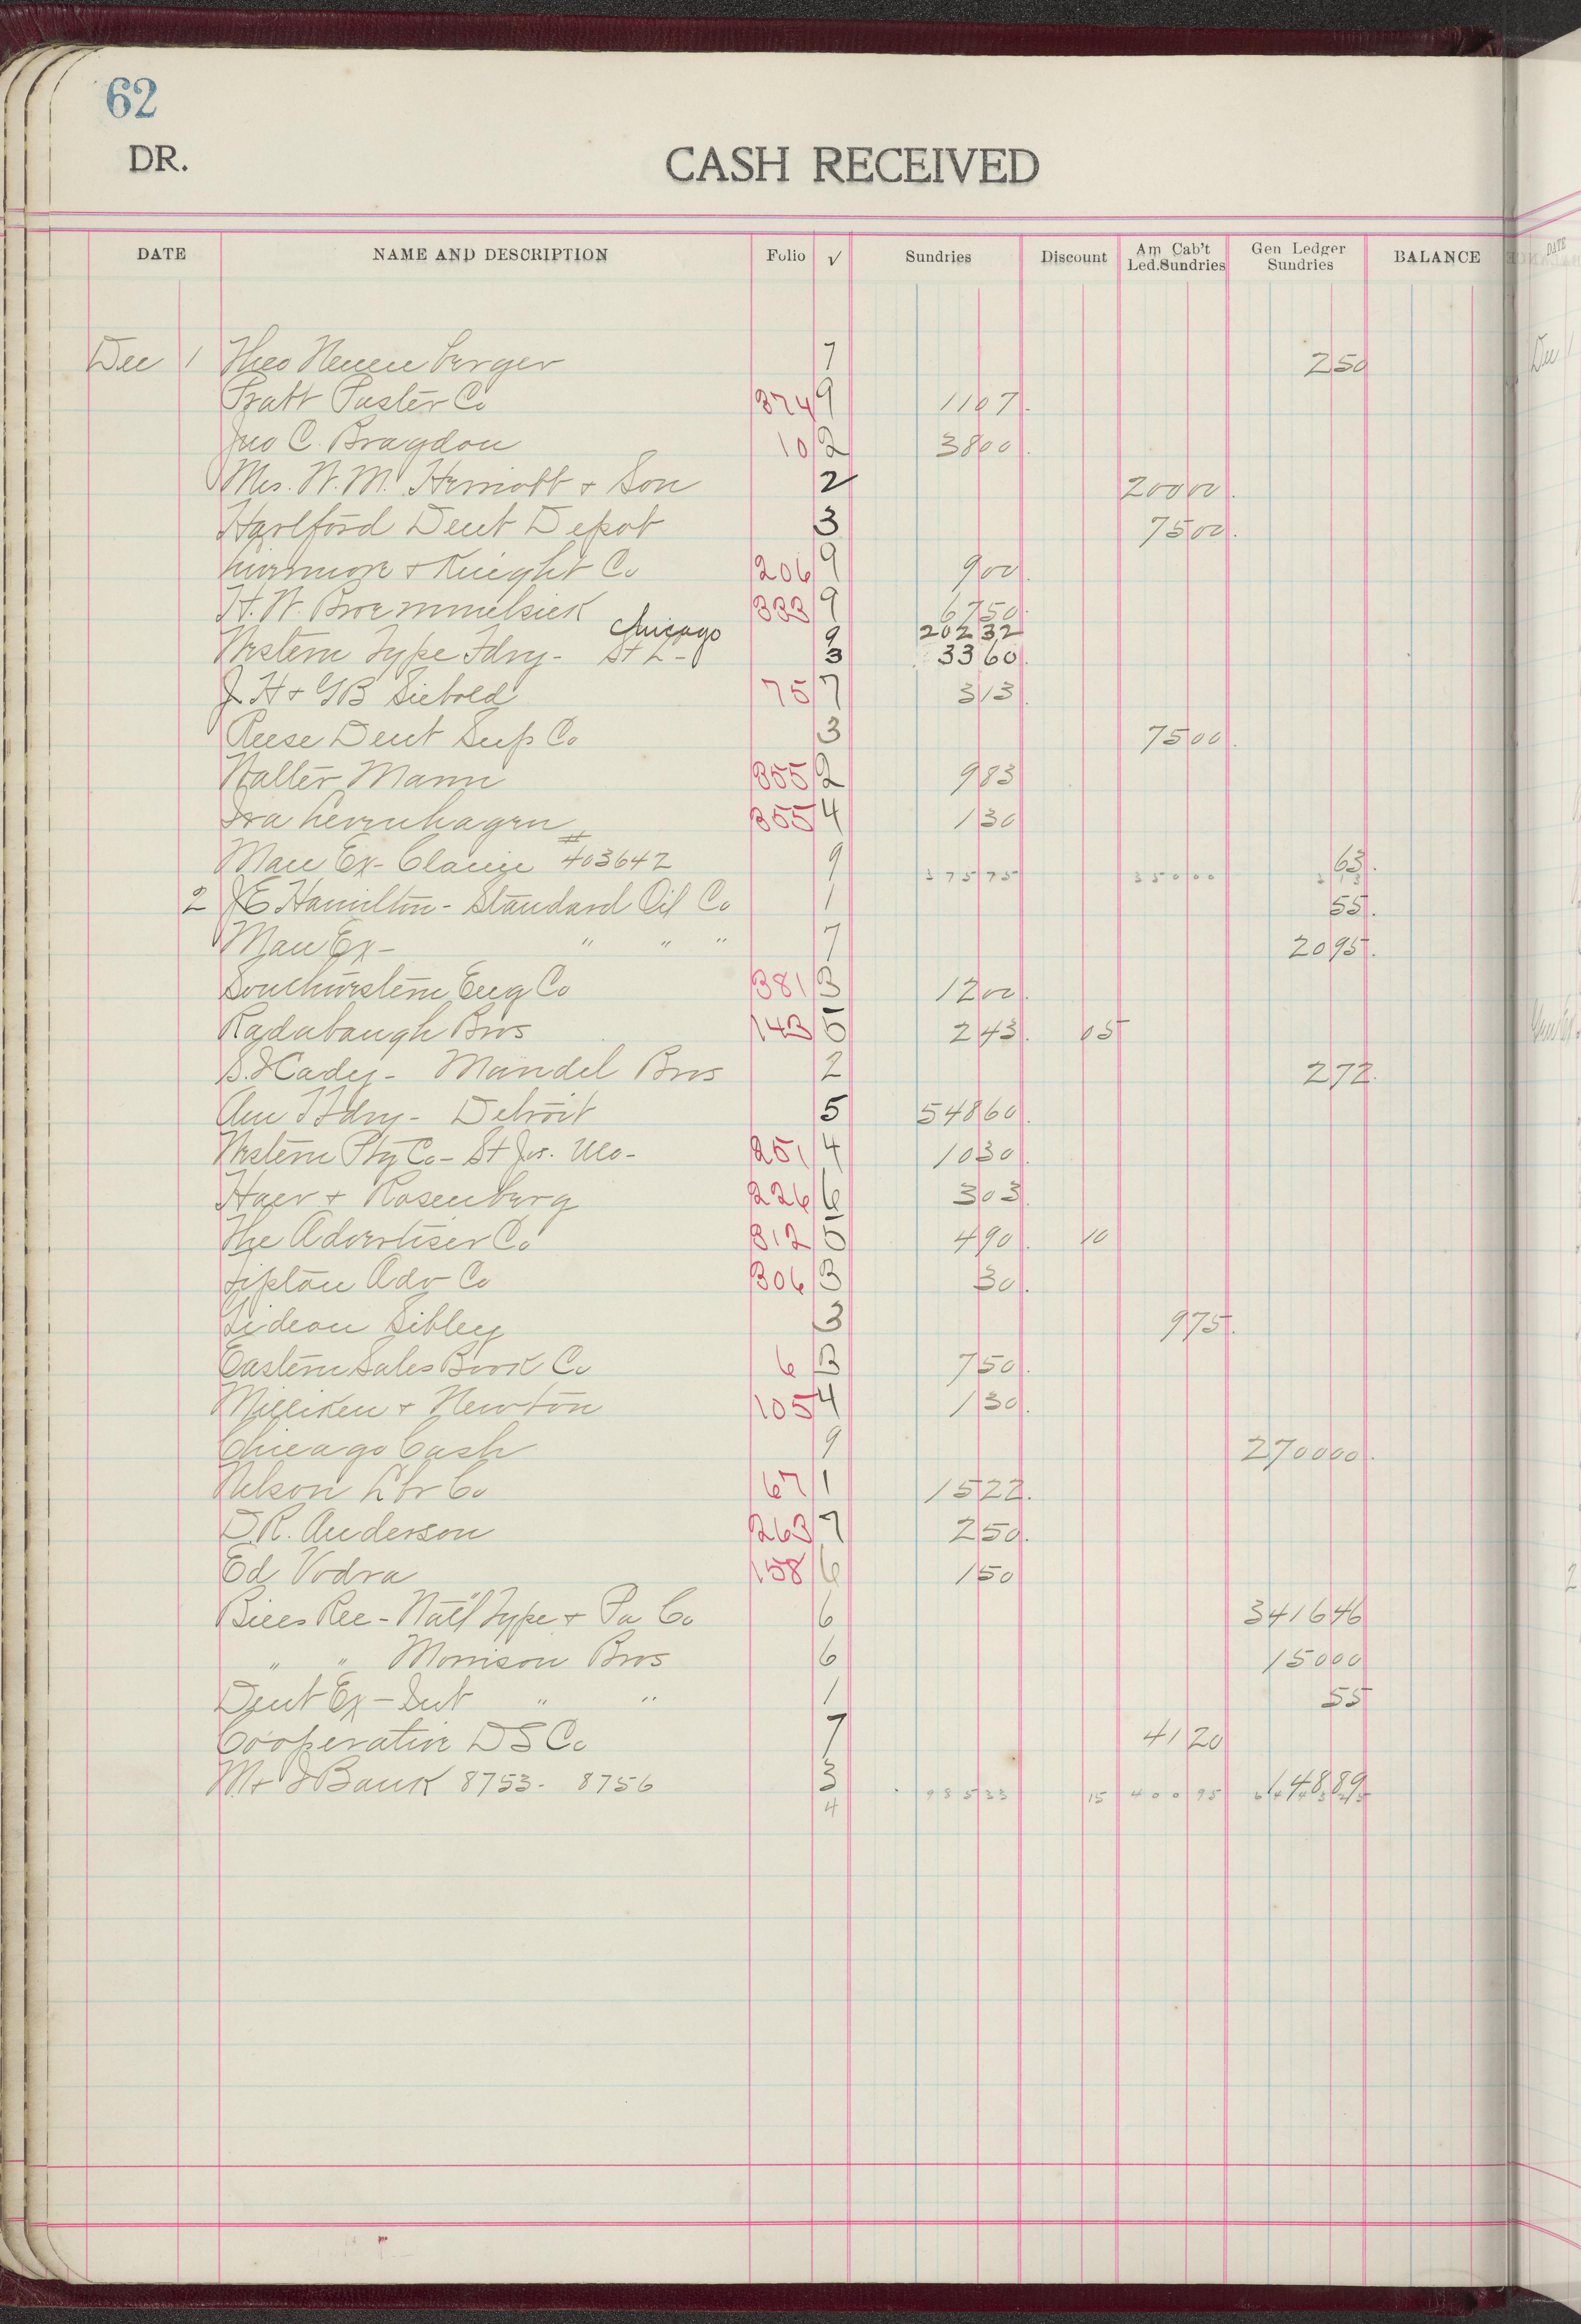 62
DR. CASH RECEIVED
DATE NAME AND DESCRIPTION Folio √ Sundries Discount Am Cab't Led.Sundries Gen Ledger Sundries BALANCE
Dec 1 Theo Neuenberger 7 250
Pratt Paster Co 374 9 1107
Jno C. Bragdon 10 2 3800
Mrs. W. M. Herriott + Son 2 20000
Hartford Dent Depot 3 7500
+ Knight Co 206 9 900
H. W. Broemmelsick 333 9 6750
Chicago 9 20232
Western Type Fdry - St L - 3 3360
J. H + GB Siebold 75 7 313
Reese Dent Sup Co 3 7500
Walter Mann 355 2 983
Ira Levenhagen 355 4 130
Man Ex - Claim #403642 9 37575 35000 63
2 JE Hamilton - Standard Oil Co 1 55
Man Ex - " " " 7 2095
Southwestern Eng Co 381 3 1200
Radabaugh Bros 143 5 243 05
S. H Cady - Mandel Bros 2 272
Am T Fdry - Detroit 5 54860
Western Ptg Co - St Jos. Mo - 251 4 1030
Haer + Rosenberg 226 6 303
The Advertiser Co 312 5 490 10
Tipton Adv Co 306 3 30
Gideon Sibley 3 975
Eastern Sales Book Co 6 3 750
Milliken + Newton 105 4 130
Chicago Cash 9 270000
Nelson Lbr Co 67 1 1522
D.R. Anderson 263 7 250
Ed Vodra 158 6 150
Bills Rec - Nat'l Type + Pa Co 6 341646
" " Morrison Bros 6 15000
Dent Ex - Int " " 1 55
Cooperative D S Co 7 4120
M + S Bank 8753 - 8756 3 98533 15 40095 14889
4